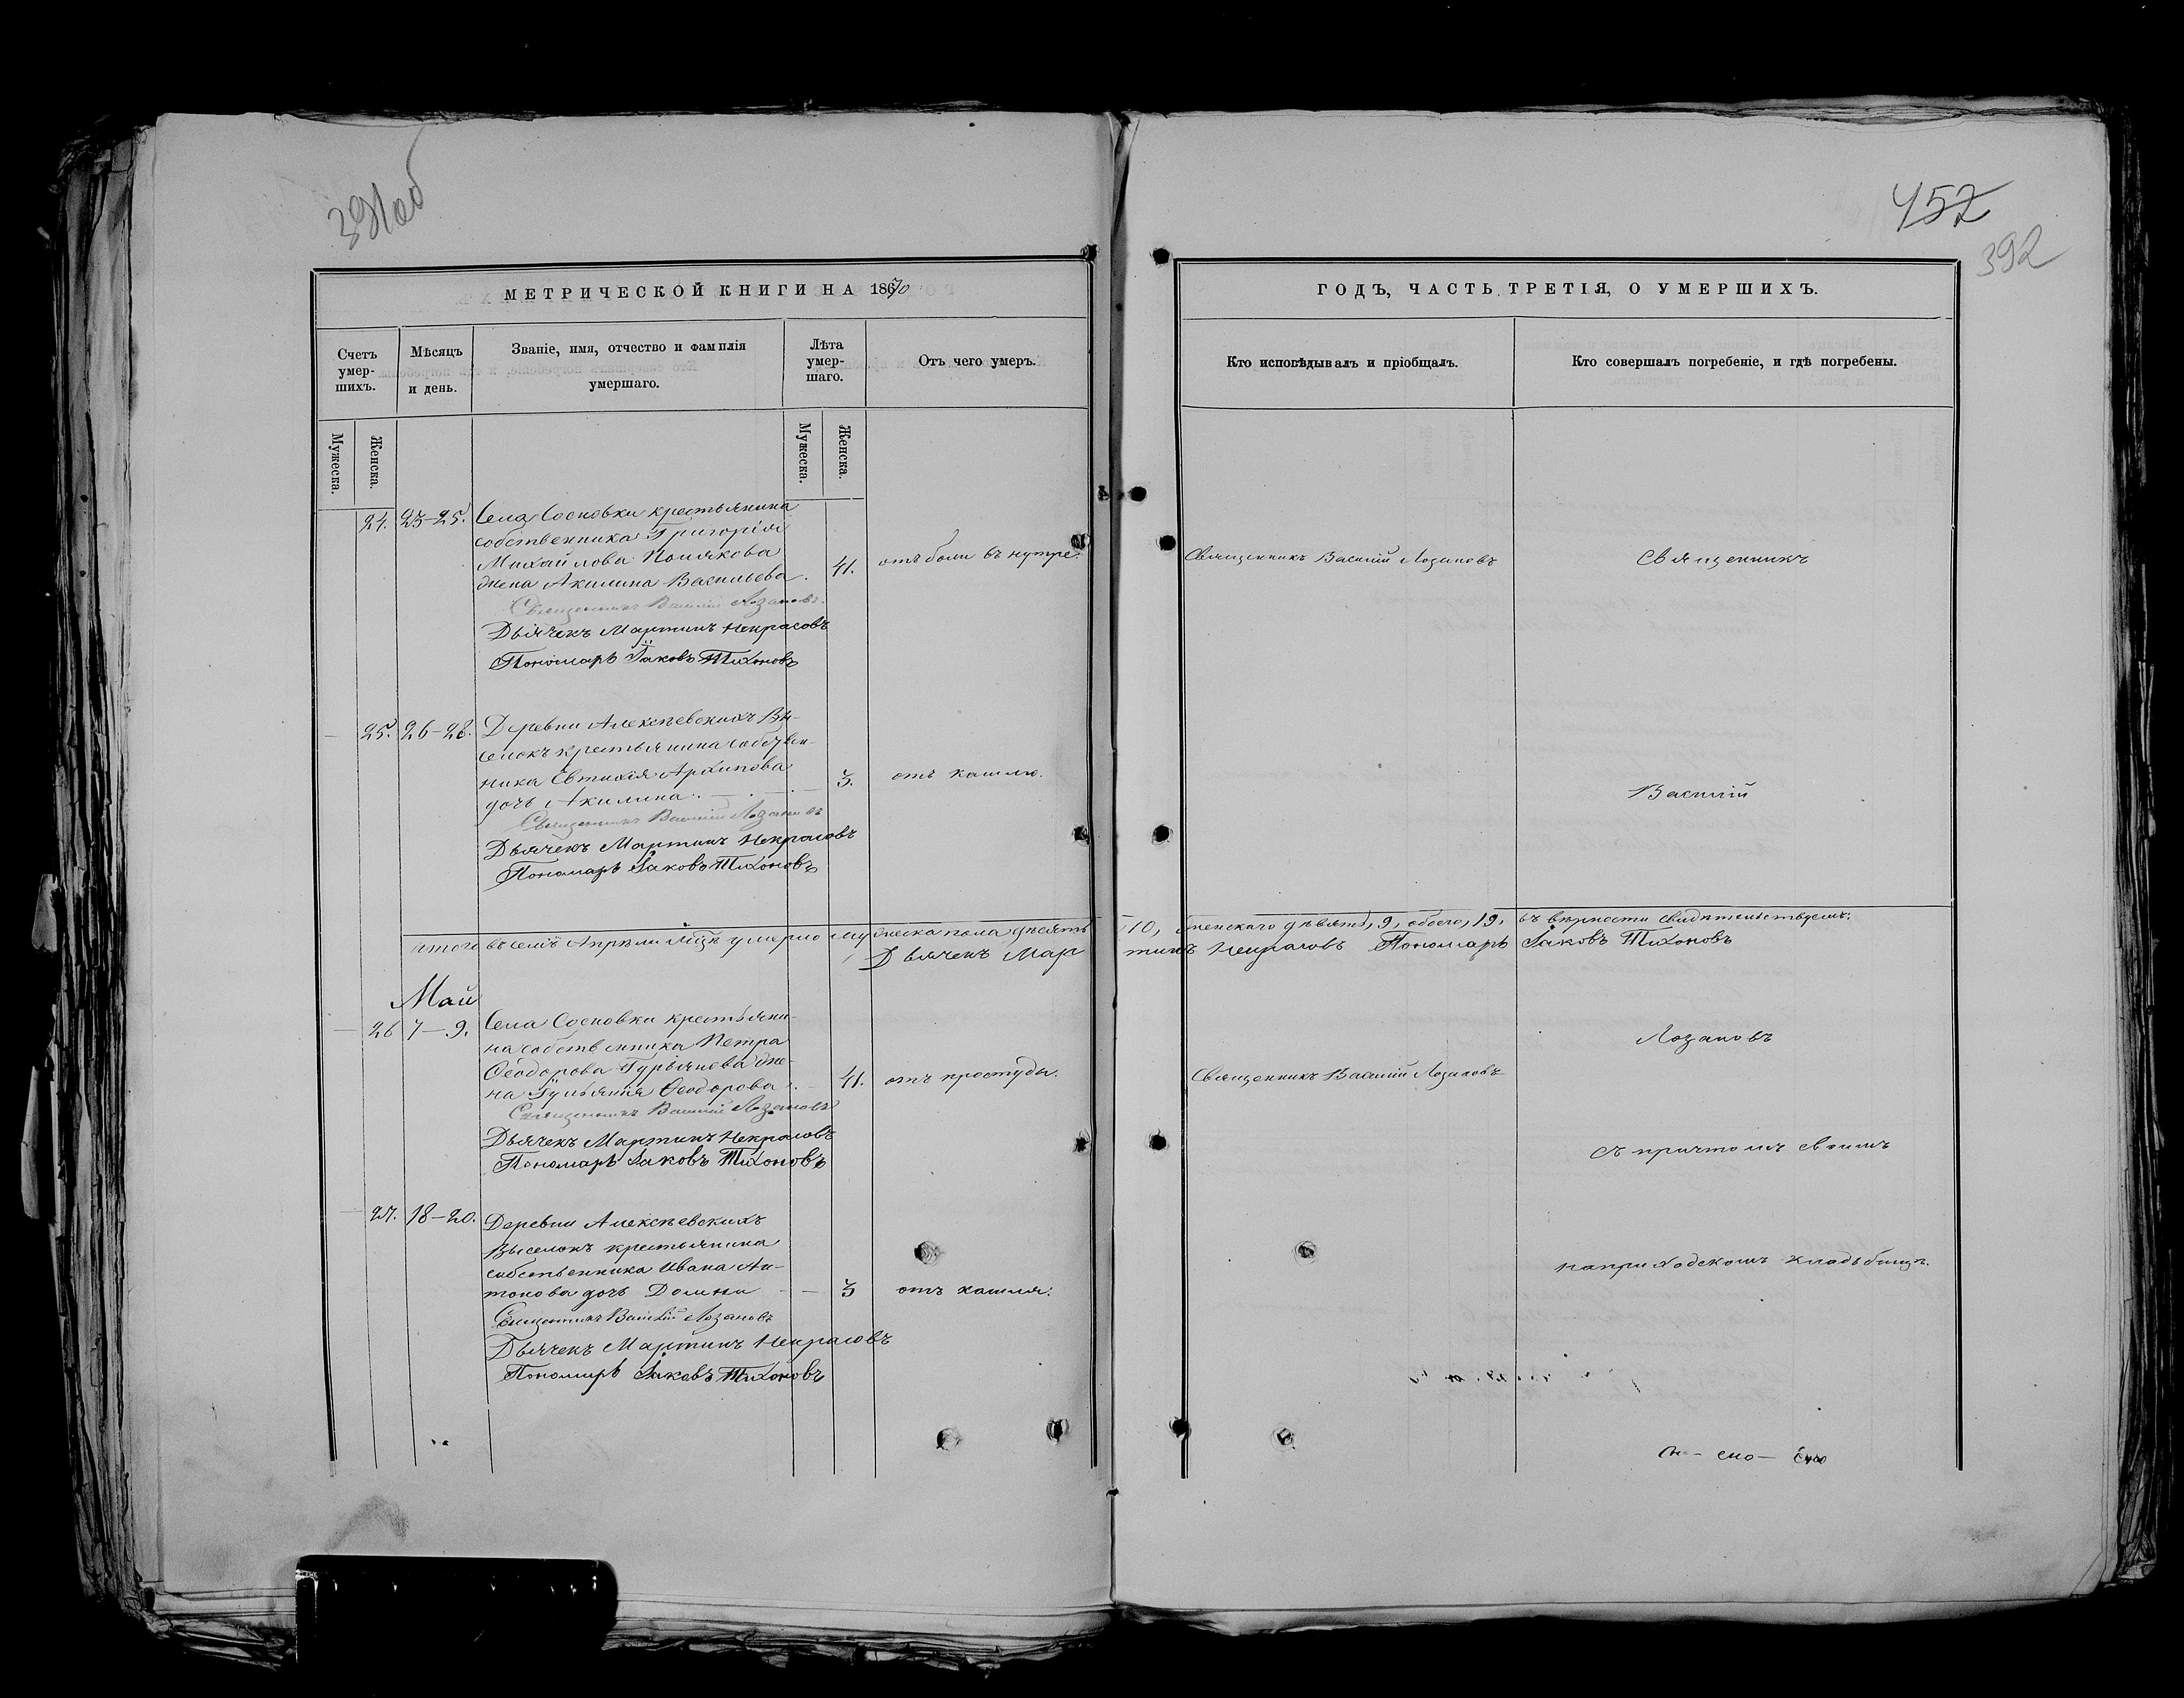 391об
457
392
МЕТРИЧЕСКОЙ КНИГИ НА 1870
ГОДЪ, ЧАСТЬ ТРЕТІЯ, О УМЕРШИХЪ.
Счетъ умер-шихъ.
Мѣсяцъ и день.
Званіе, имя, отчество и фамилія умершаго.
Лѣта умер-шаго.
Отъ чего умеръ.
Кто исповѣдывалъ и пріобщалъ.
Кто совершалъ погребеніе, и гдѣ погребены.
Мужеска.
Женска.
Мужеска.
Женска.
24. 23-25. Села Сосновки крестьянина
собственника Григорія
Михайлова Полякова
жена Акилина Васильева. 41. отъ боли въ нутре. Священникъ Василій Лозановъ Священникъ
Священникъ Василій Лозановъ
Дьячекъ Мартинъ Некрасовъ
Пономарь Іаковъ Тихоновъ
25. 26-28. Деревни Алексѣевскихъ Вы-
селокъ крестьянина собствен-
ника Евтихія Архипова
дочь Акилина. 3. отъ кашлю. Василій
Священникъ Василій Лозановъ
Дьячекъ Мартинъ Некрасовъ
Пономарь Іаковъ Тихоновъ
итого въ семъ Апрѣли мцѣ умерло мужеска пола десять 10, женскаго девять, 9, обоего, 19, въ вѣрности свидѣтельствуемъ:
Дьячекъ Мартинъ Некрасовъ Пономарь Іаковъ Тихоновъ
Май
26 7-9. Села Сосновки крестьяни-
на собственника Петра
Ѳеодорова Гурьянова же-
на Іульянія Ѳеодорова. 41. отъ простуды. Священникъ Василій Лозановъ Лозановъ
Священникъ Василій Лозановъ
Дьячекъ Мартинъ Некрасовъ
Пономарь Іаковъ Тихоновъ
съ причтомъ своимъ
27. 18-20. Деревни Алексѣевскихъ
Выселокъ крестьянина
собственника Ивана Ан-
тонова дочь 3 отъ кашля. на приходскомъ кладбищѣ.
Священникъ Василій Лозановъ
Дьячекъ Мартинъ Некрасовъ
Пономарь Іаковъ Тихоновъ